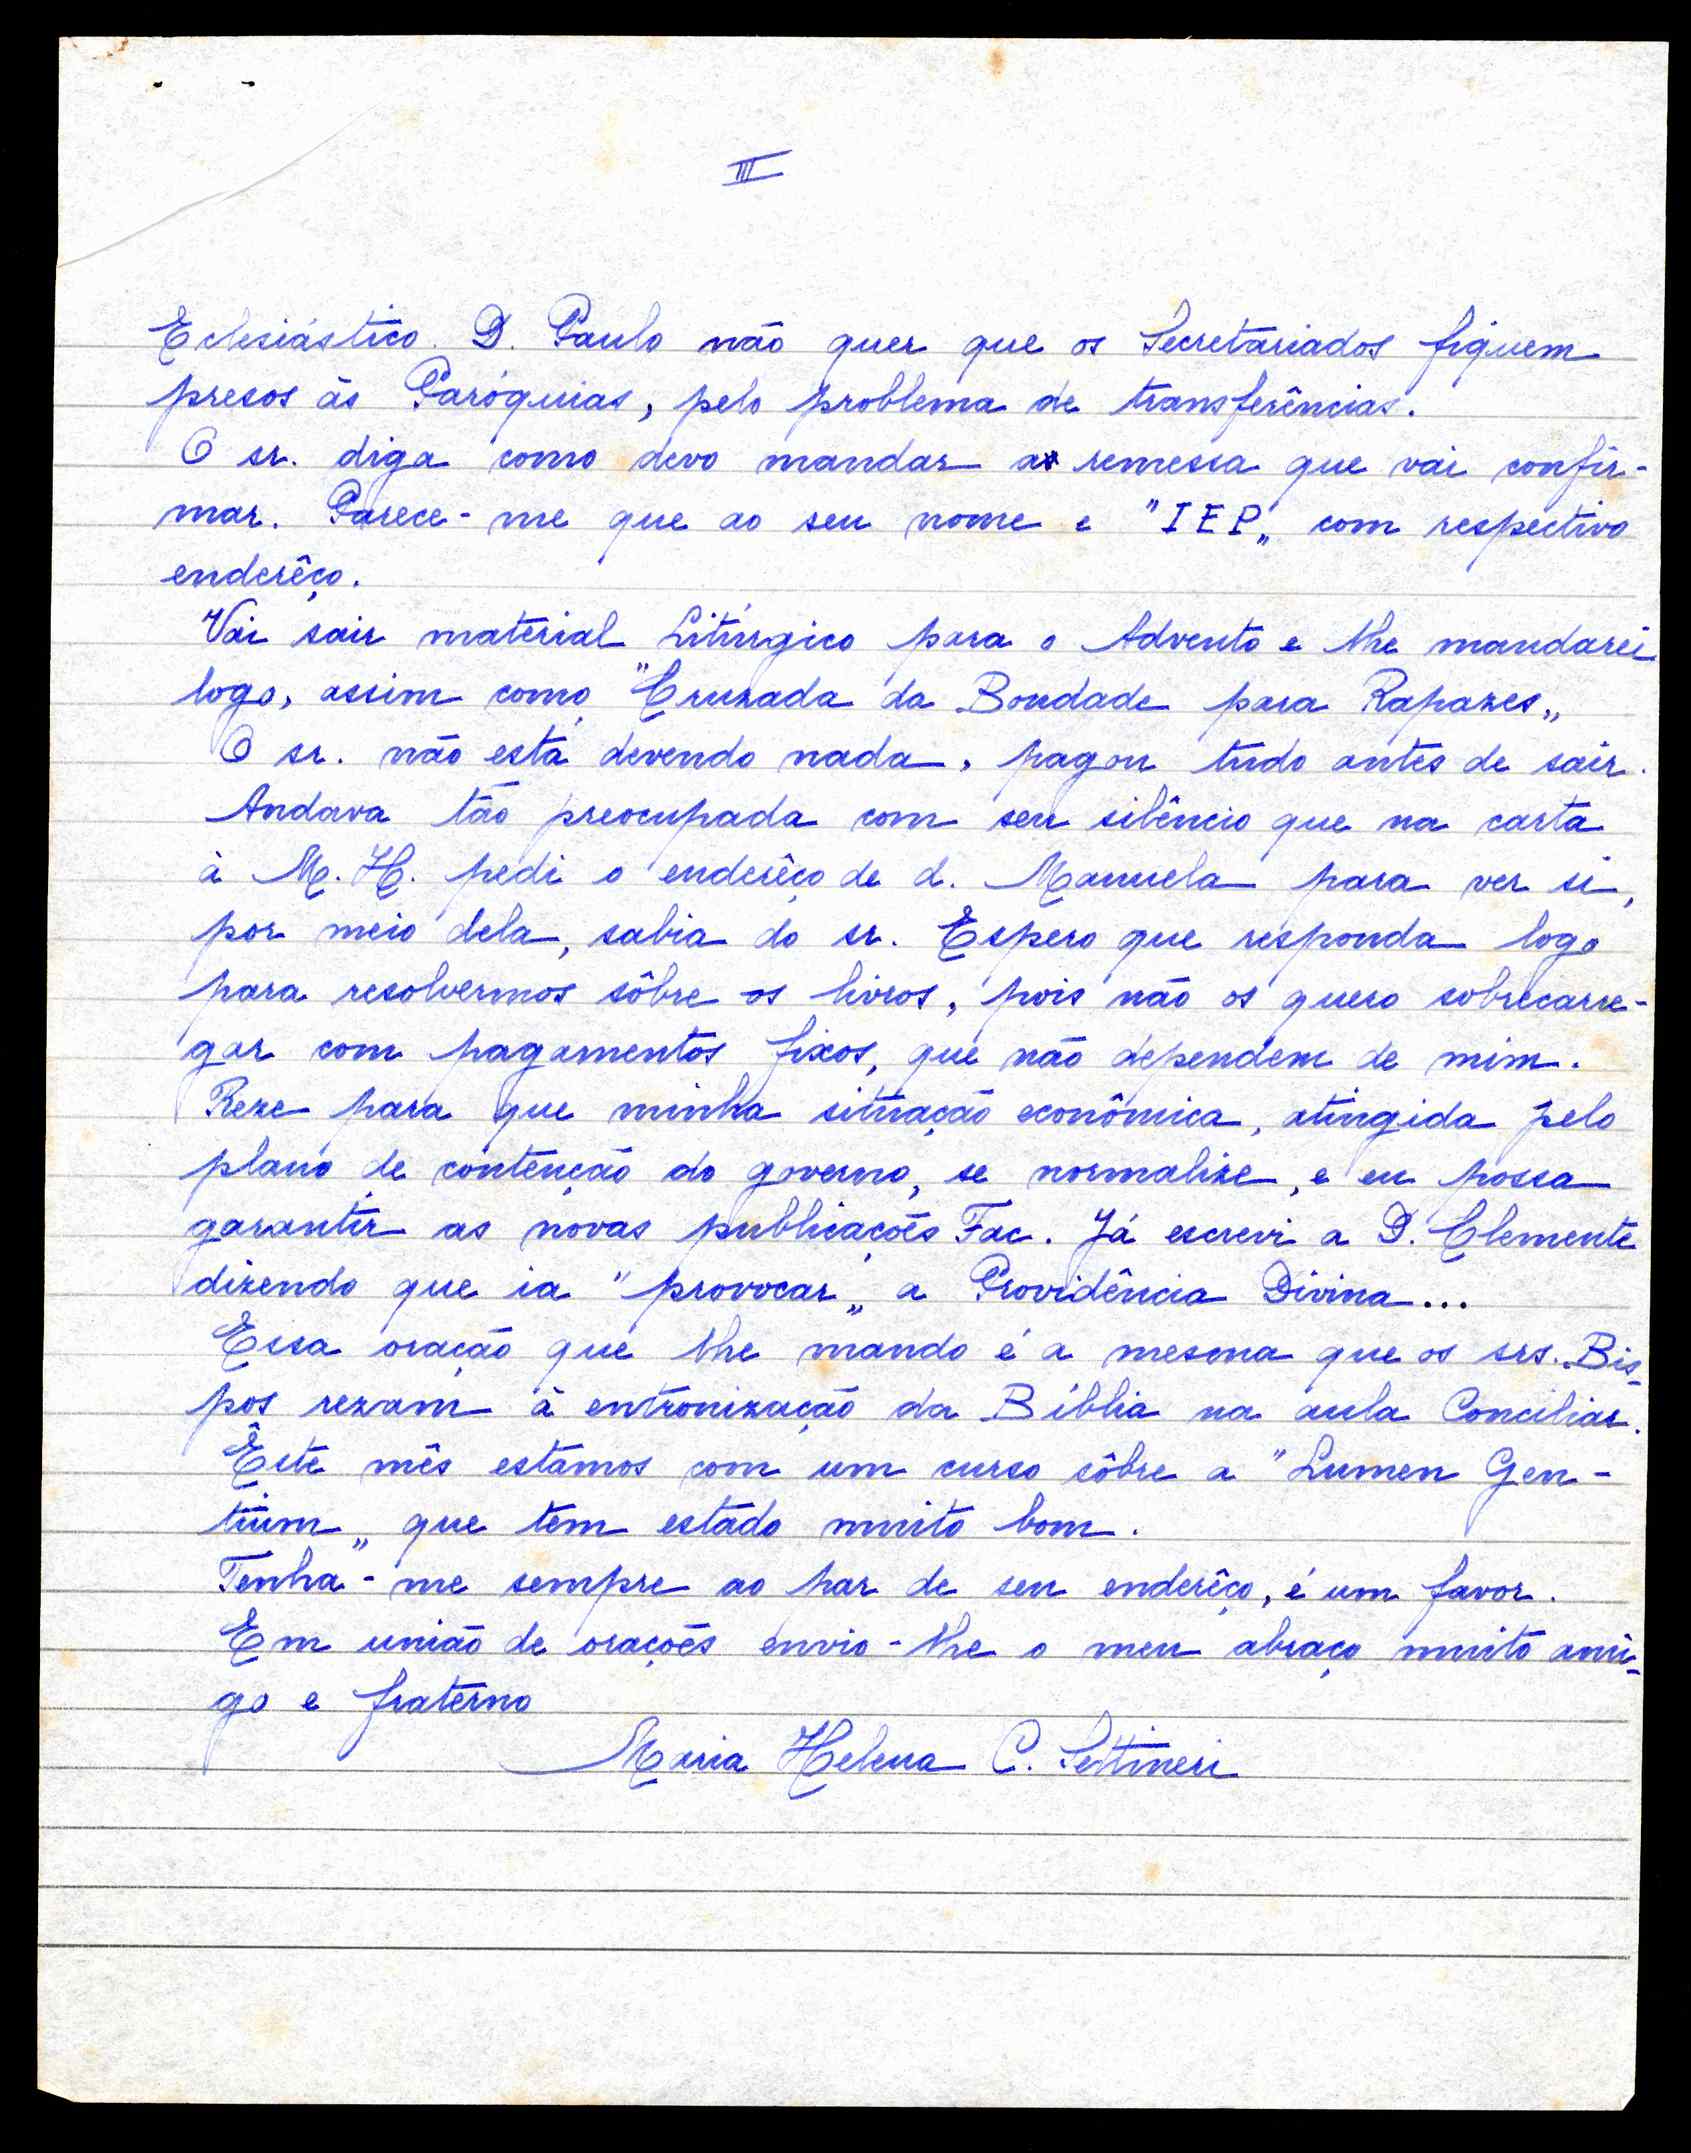 III
Eclesiástico. D. Paulo não quer que os Secretariados fiquem
presos às Paróquias, pelo problema de transferências.
O sr. diga como devo mandar a remessa que vai confir-
mar. Parece-me que ao seu nome e "IEP„ com respectivo
enderêço.
Vai sair material Litúrgico para o Advento e lhe mandarei
logo, assim como "Cruzada da Bondade para Rapazes„
O sr. não está devendo nada, pagou tudo antes de sair.
Andava tão preocupada com seu silêncio que na carta
à M. H. pedi o enderêço de d. Manuela para ver si,
por meio dela, sabia do sr. Espero que responda logo
para resolvermos sôbre os livros, pois não os quero sobrecarre-
gar com pagamentos fixos, que não dependem de mim.
Reze para que minha situação econômica, atingida pelo
plano de contenção do governo, se normalize, e eu possa
garantir as novas publicações Fac. Já escrevi a D. Clemente
dizendo que ia "provocar„ a Providência Divina...
Essa oração que lhe mando é a mesma que os srs. Bis-
pos rezam à entronização da Bíblia na aula Conciliar.
Êste mês estamos com um curso sôbre a "Lumen Gen-
tium„ que tem estado muito bom.
Tenha-me sempre ao par de seu enderêço, é um favor.
Em união de orações envio-lhe o meu abraço muito ami-
go e fraterno
Maria Helena C. Settineri